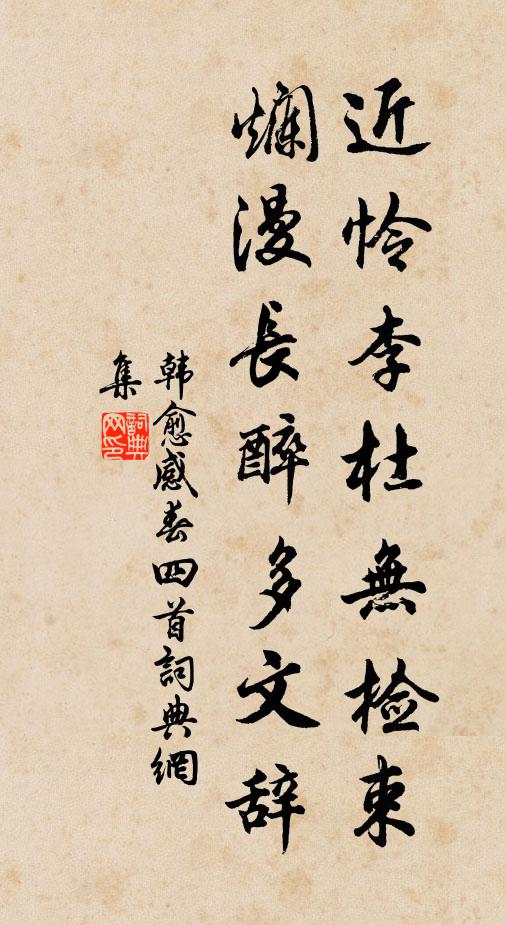 近怜李杜無检束
爛漫長醉多文辞
韩愈感春四首詞典網
集
詞典网印